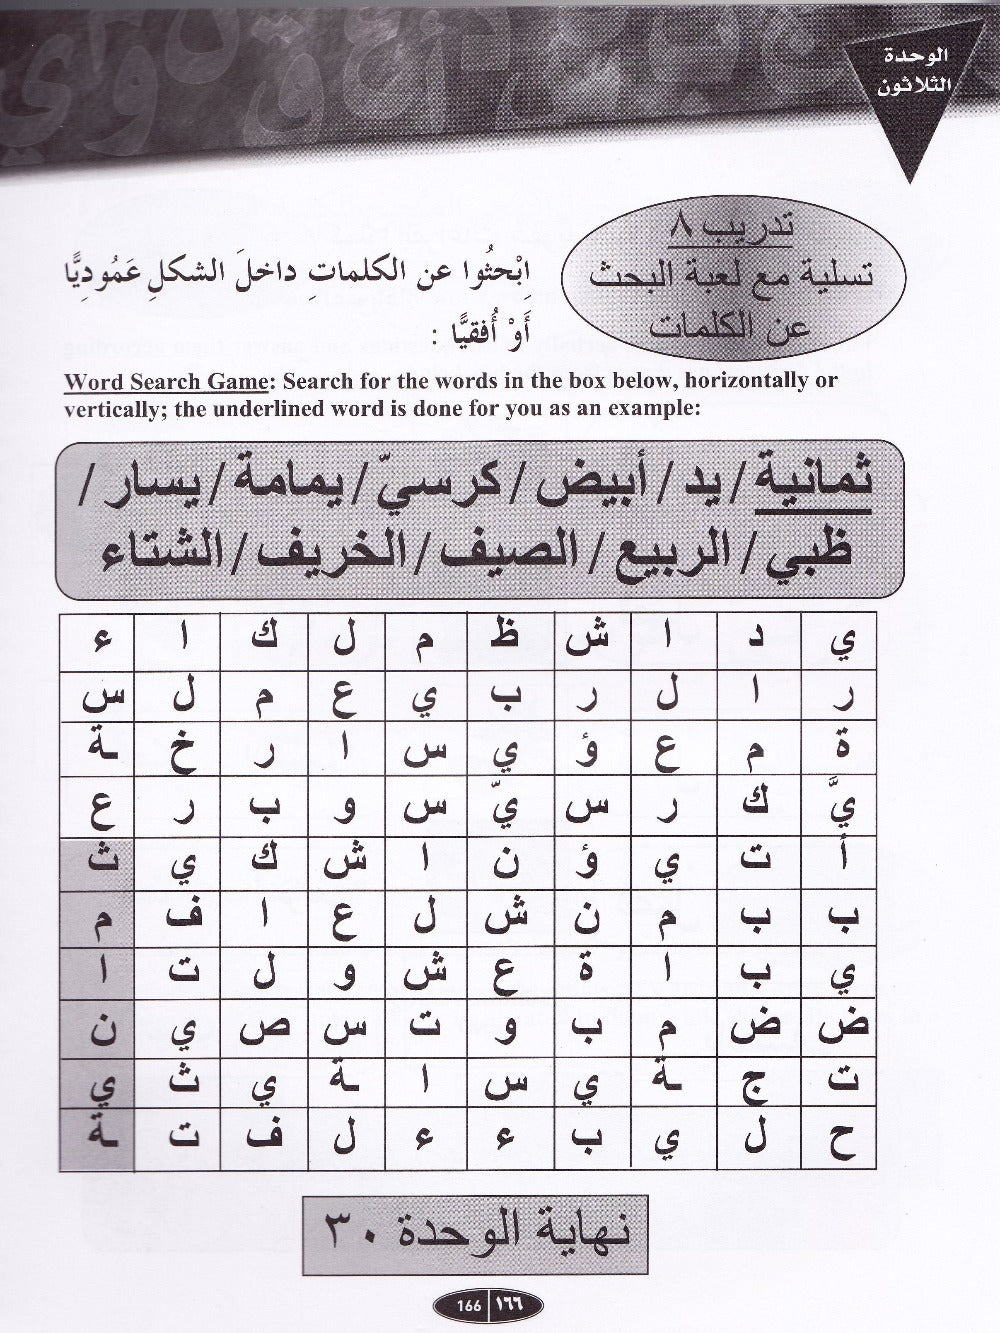 الوحدة
الثلاثون
تدريب ٨
تسلية مع لعبة البحث
عن الكلمات
اِبْحثُوا عن الكلماتِ داخلَ الشكلِ عَمُودِيًّا
أَوْ أُفقيًّا :
Word Search Game: Search for the words in the box below, horizontally or
vertically; the underlined word is done for you as an example:
ثمانية / يد / أبيض / كرسيّ / يمامة / يسار /
ظبي / الربيع / الصيف / الخريف / الشتاء
ي د ا ش ظ م ل ك ا ء
ر ا ل ر ب ي ع م ل س
ة م ع ؤ ي س ا ر خ ـة
يَّ ك ر س يّ س و ب ر ع
أ ت ي ؤ ن ا ش ك ي ث
ب ب م ن ش ل ع ا ف م
ي ب ا ة ع ش و ل ت ا
ض ض م ب و ت س ص ي ن
ت ج ـة ي س ا ـة ي ث ي
ح ل ي ب ء ء ل ف ت ـة
نهاية الوحدة ٣٠
166 ١٦٦